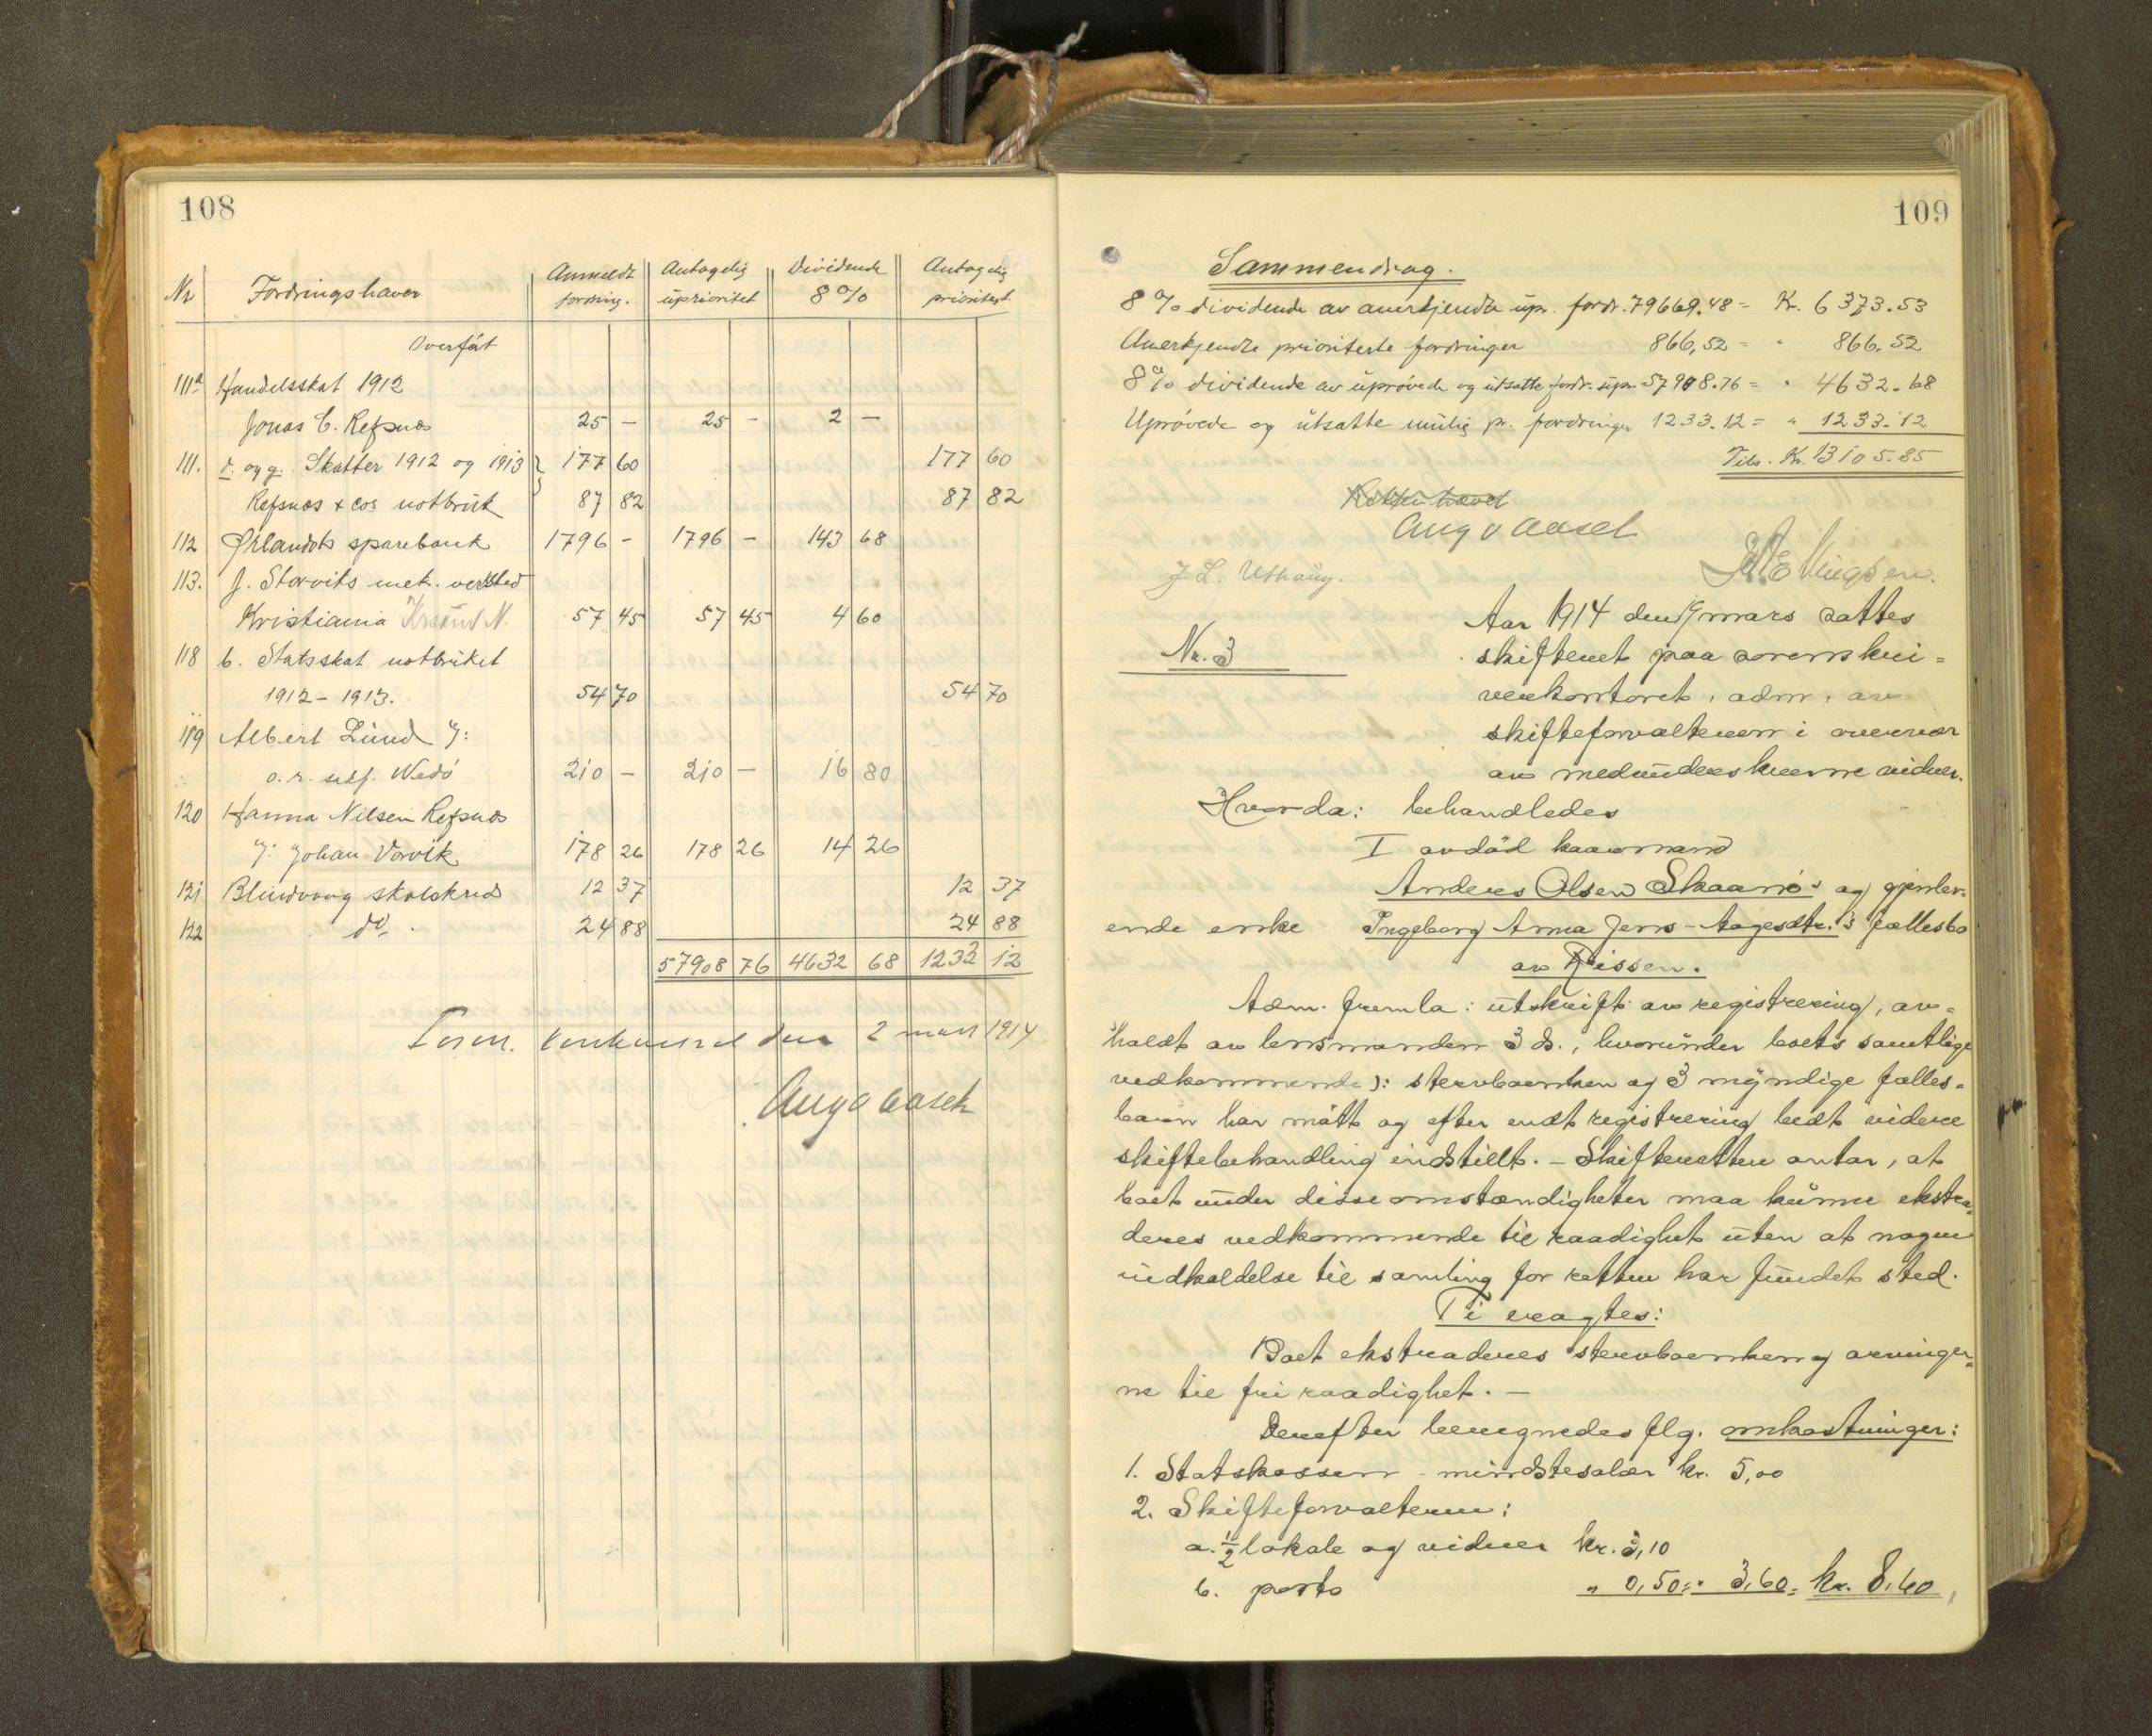 108
Nr Fordringshaver Anmeldt fordring. Antagelig uprioritet Dividende 8% Antagelig prioritert
Overført
111a Handelsskat 1912
Jonas C. Refsnæs 25 - 25 - 2 -
111. d. og g. Skatter 1912 og 1913 177 60 177 60
Refsnæs & Cos notbruk 87 82 87 82
112 Ørlandets sparebank 1796 - 1796 - 143 68
113. J. Storviks mek. verksted
Kristiania Krsund N. 57 45 57 45 4 60
118 b. Statsskat notbruket
1912 - 1913. 54 70 54 70
119 Albert Lund ʔ:
o.r. sakf. Wedø 210 - 210 - 16 80
120 Hanna Nilsen Refsnæs
ʔ: Johan Vorvik 178 26 178 26 14 26
121 skolekreds 12 37 12 37
122 do. 24 88 24 88
57908 76 4632 68 1232 12
den 2 mars 1914
Aug Aasek
109
Sammendrag.
8% dividende av anerkjendte upr. fordr. 79669.48 = Kr. 6373.53
Anerkjendte prioriterte fordringer 866,52 = " 866.52
8% dividende av uprøvede og utsatte fordr. upr. 57908.76 = " 4632.68
Uprøvede og utsatte mulig pr. fordringer 1233.12 = " 1233.12
Tils. Kr. 13105.85
Retten hævet
Aug Aasek
J. L. Uthaug.
Nr. 3
Aar 1914 den 19 mars sattes
skifteret paa sorenskri=
verkontoret, adm. av
skifteforvalteren i overvær
av medunderskrevne vidner.
Hvorda: behandledes
I avdød kaarmand
Anders Olsen Skaanø's og gjenlev=
ende enke Ingeborg Anna Jens-Aagesdtr.'s fællesbo
av Rissen.
Adm. fremla: utskrift av registrering, av=
holdt av lensmanden 3 ds., hvorunder boets samtlige
vedkommende ɔ: stervboenken og 3 myndige fælles=
barn har møtt og efter endt registrering bedt videre
skiftebehandling indstillt. - Skifteretten antar, at
boet under disse omstændigheter maa kunne ekstra=
deres vedkommende til raadighet uten at nogen
indkaldelse til samling for retten har fundet sted.
Ti eragtes:
Boet ekstraderes stervboenken og arvinger=
ne til fri raadighet. -
Derefter beregnedes flg. omkostninger:
1. Statskassen - mindstesalær kr. 5,00
2. Skifteforvalteren:
a. ½ lokale og vidner kr. 3,10
b. porto " 0,50 = " 3,60 = kr. 8,60